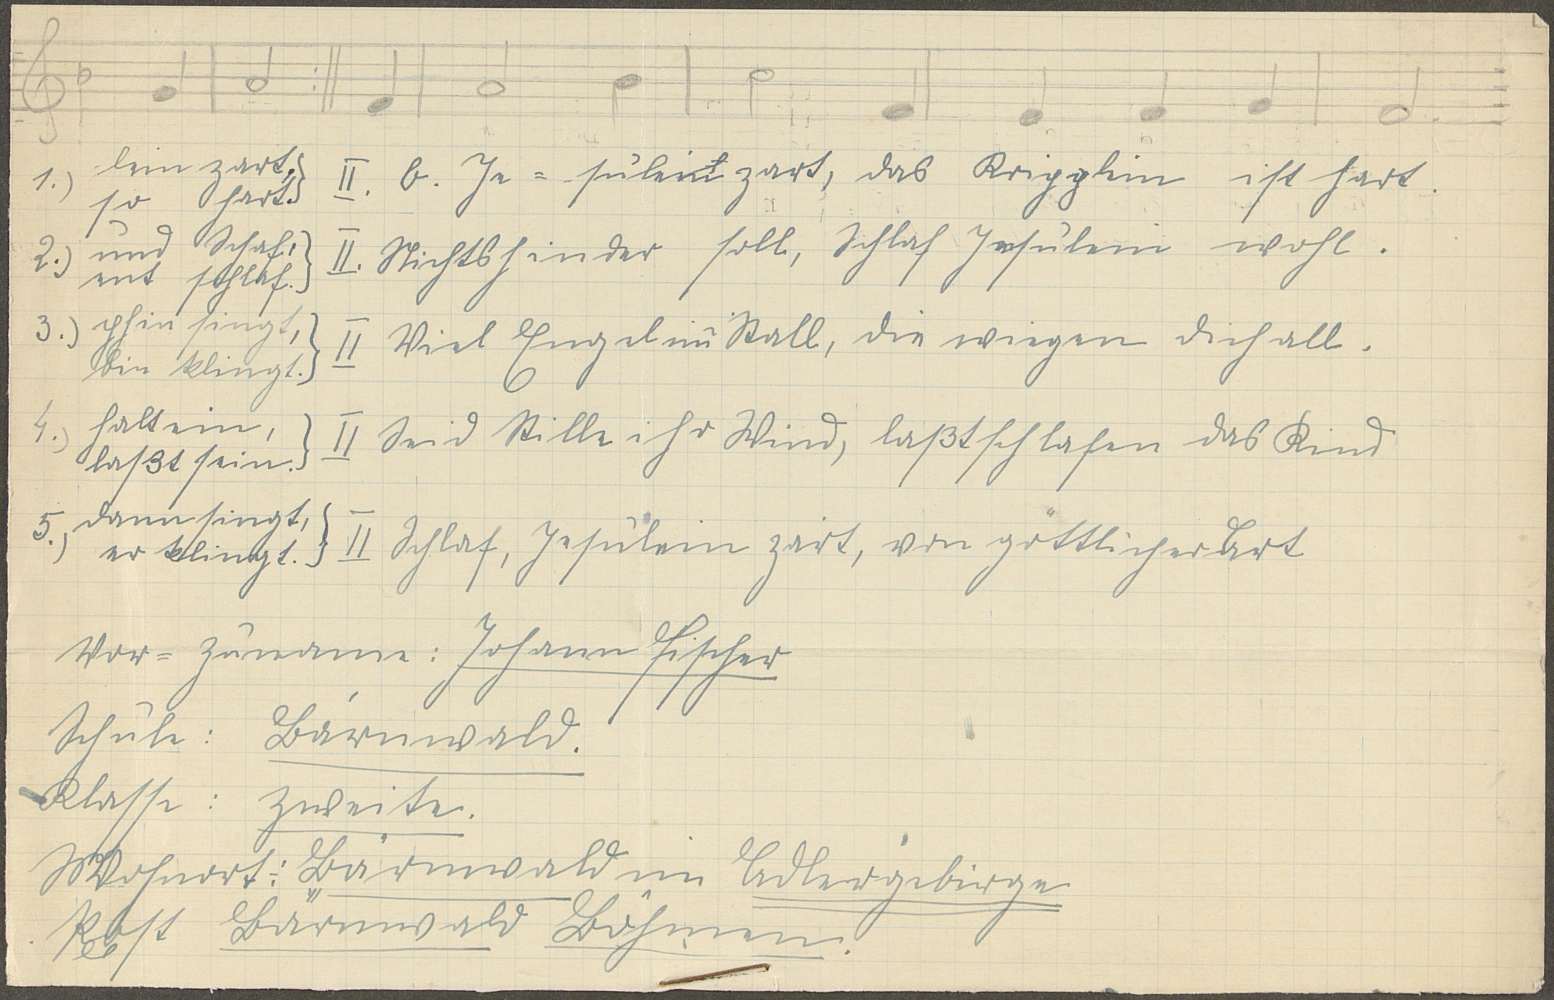 1.) lein zart,} II. b. Je = sulein zart, das Kripplein ist hart.
so hart.
2.) und Schaf,} II. Nichts hinder soll, Schlaf Jesulein wohl.
ent schlaf.
3.) phin singt,} II Viel Engel im Stall, die wiegen dich all.
bin klingt.
4.) halt ein,} II Seid Stille ihr Wind, laßt schlafen das Kind
laßt sein.
5.) dann singt,} II Schlaf, Jesulein zart, von göttlicher Art
er klingt.
Vor= Zuname: Johann Fischer
Schule: Bärnwald.
Klasse: zweite.
Wohnort: Bärnwald im Adlergebirge
Post Bärnwald Böhmen.